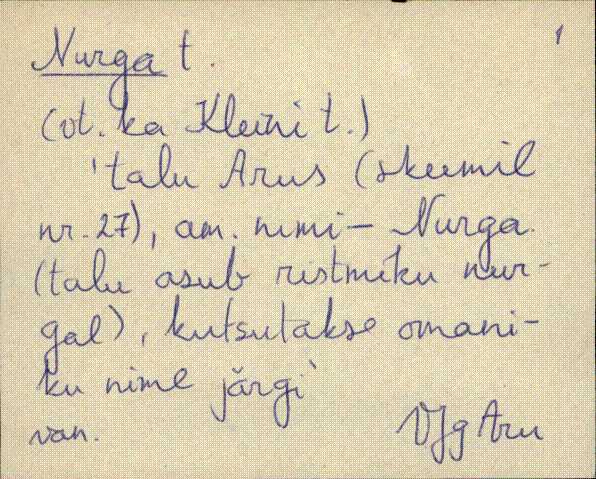 1
Nurga t.
(vt. ka Kleini t.)
'talu Arus (skeemil
nr. 27), am. nimi – Nurga
(talu asub ristmiku nur-
gal), kutsutakse omani-
ku nime järgi'
van. VJg Aru